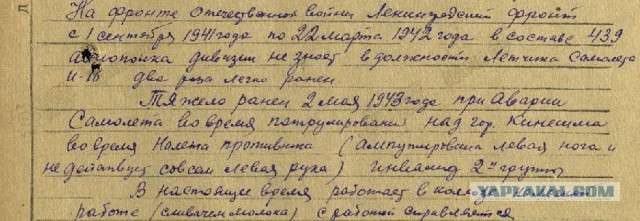 На фронте отечественной войны Ленинградский фронт
с 1 сентября 1941 года по 22 марта 1942 года в составе 439
авиополка дивизии не знает в должности летчика самолета
И-16 два раза легко ранен
Тяжело ранен 2 мая 1943 года при аварии
самолета во время патрулирования над гор. Кинешма
во время налета противника (ампутирована левая нога и
не действует совсем левая рука) инвалид 2й группы
В настоящее время работает в
работе (сливачем молока) с работой справляется
YAPLAKAL.COM